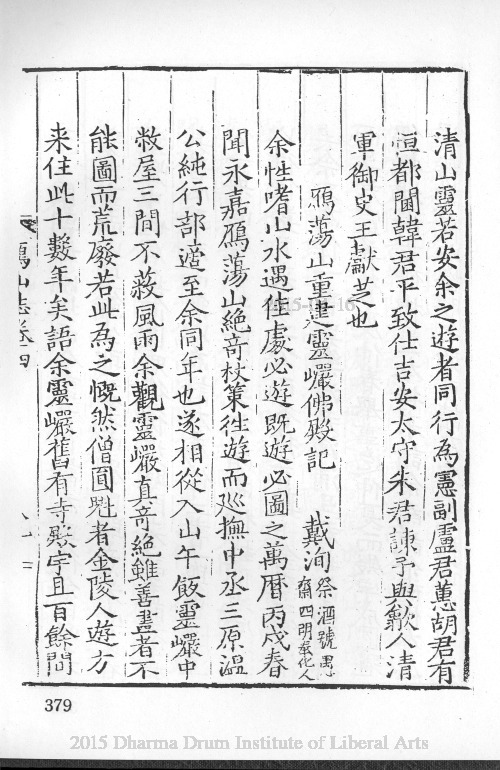 清山靈若安余之遊者同行為憲副盧君蕙胡君有
恒都閫韓君平致仕吉安太守朱君諫予與歙人清
軍御史王獻芝也
鴈蕩山重建靈巖佛殿記 戴洵祭酒號愚齋四明奉化人
余性嗜山水遇佳處必遊既遊必圖之萬曆丙戌春
聞永嘉鴈蕩山絕奇杖策徃遊而巡撫中丞三原溫
公純行部適至余同年也遂相從入山午飯靈巖中
敝屋三間不蔽風雨余觀靈巖真奇絕雖善畫者不
能圖而荒廢若此為之慨然僧圓魁者金陵人遊方
来住此十數年矣語余靈巖舊有寺殿宇且百餘間
鴈山志卷四
379
2015 Dharma Drum Institute of Liberal Arts